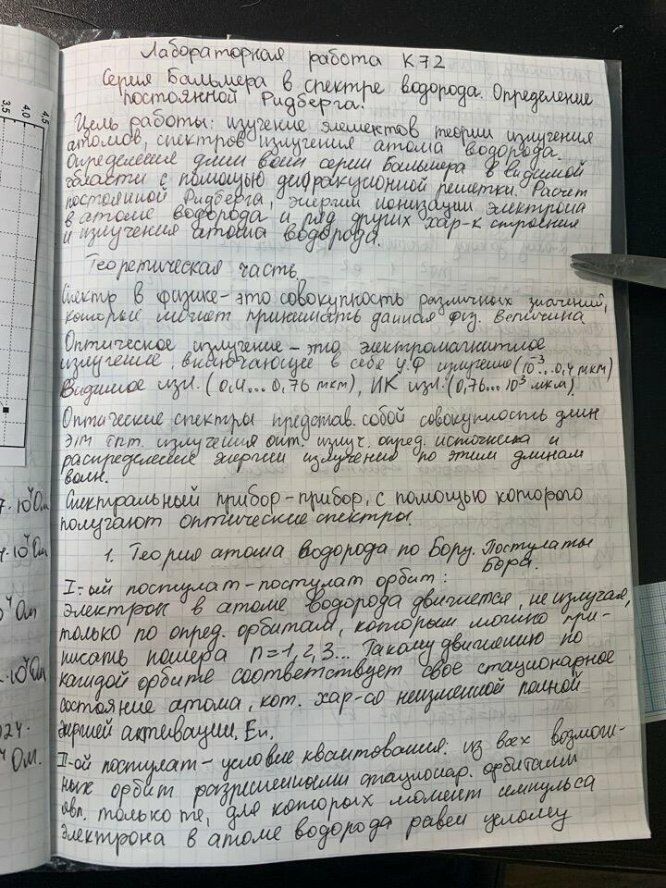 Лабораторная работа К72
Серия Бальмера в спектре водорода. Определение
постоянной Ридберга.
Цель работы: изучение элементов теории излучения
атомов, спектров излучения атома водорода.
Определение длин волн серии Бальмера в видимой
области с помощью дифракционной решетки. Расчет
постоянной Ридберга, энергии ионизации электрона
в атоме водорода и ряд других хар-к строения
и излучения атома водорода.
Теоретическая часть
Спектр в физике - это совокупность различных значений,
которые может принимать данная физ. величина
Оптическое излучение - это электромагнитное
излучение, включающее в себе У.Ф излучение (10⁻³...0,4 мкм)
Видимое изл. (0,4...0,76 мкм), ИК изл. (0,76...10³ мкм)
Оптические спектры представ. собой совокупность длин
излучения опред. источника и
распределение энергии излучения по этим длинам
волн.
Спектральный прибор - прибор, с помощью которого
получают оптические спектры.
1. Теория атома водорода по Бору. Постулаты
Бора.
I-ый постулат - постулат орбит:
Электрон в атоме водорода движется, не излучая,
только по опред. орбитам, которым можно при-
писать номера n=1,2,3... Такому движению по
каждой орбите соответствует свое стационарное
состояние атома, кот. хар-ся неизменной полной
энергией активации, En.
II-ой постулат - условие квантования: из всех возмож-
ных орбит разрешенными стационар. орбитами
явл. только те, для которых момент импульса
электрона в атоме водорода равен целому
4,5
4,0
3,5